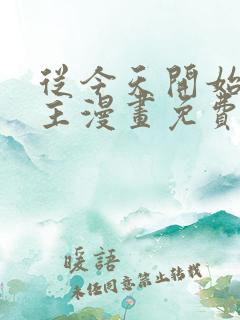 從今天開始
王漫畫免費
暖語
未經同意禁止轉載